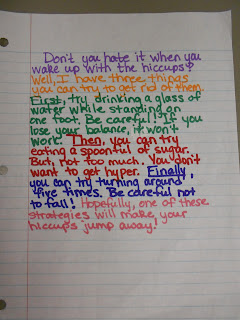 Don't you hate it when you
wake up with the hiccups?
Well, I have three things
you can try to get rid of them.
First, try drinking a glass of
water while standing on
one foot. Be careful! If you
lose your balance, it won't
work. Then, you can try
eating a spoonful of sugar.
But, not too much. You don't
want to get hyper. Finally,
you can try turning around
five times. Be careful not
to fall! Hopefully, one of these
strategies will make your
hiccups jump away!